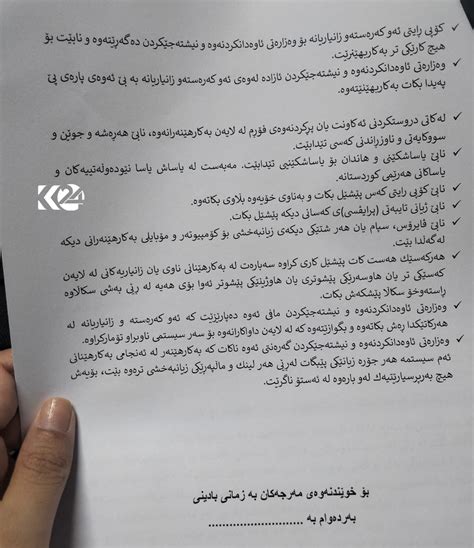 ✓ کۆپی رایتی ئەو کەرەستەو زانیاریانە بۆ وەزارەتی ئاوەدانکردنەوە و نیشتەجێکردن دەگەڕێتەوە و نابێت بۆ
هیچ کارێکی تر بەکاربهێنرێت.
✓ وەزارەتی ئاوەدانکردنەوە و نیشتەجێکردن ئازادە لەوەی ئەو کەرەستەو زانیاریانە بە بێ ئەوەی پارەی پێ
پەیدا بکات بەکاربهێنێتەوە.
✓ لەکاتی دروستکردنی ئەکاونت یان پڕکردنەوەی فۆڕم لە لایەن بەکارهێنەرانەوە، نابێ هەڕەشە و جوێن و
سووکایەتی و ناوزڕاندنی کەسی تێدابێت.
✓ نابێ یاساشکێنی و هاندان بۆ یاساشکێنیی تێدابێت. مەبەست لە یاساش یاسا نێودەوڵەتییەکان و
یاساکانی هەرێمی کوردستانە.
✓ نابێ کۆپی رایتی کەس پێشێل بکات و بەناوی خۆیەوە بڵاوی بکاتەوە.
✓ نابێ ژیانی تایبەتی (پرایڤسی)ی کەسانی دیکە پێشێل بکات.
✓ نابێ ڤایرۆس، سپام یان هەر شتێکی دیکەی زیانبەخشی بۆ کۆمپیوتەر و مۆبایلی بەکارهێنەرانی دیکە
لەگەڵدا بێت.
✓ هەرکەسێک هەست کات پێشێل کاری کراوە سەبارەت لە بەکارهێنانی ناوی یان زانیاریەکانی لە لایەن
کەسێکی تر یان هاوسەرێکی پێشوتری یان هاوژینێکی پێشوتر ئەوا بۆی هەیە لە ڕێی بەشی سکاڵاوە
ڕاستەوخۆ سکاڵا پێشکەش بکات.
✓ وەزارەتی ئاوەدانکردنەوە و نیشتەجێکردن مافی ئەوە دەپارێزێت کە ئەو کەرەستە و زانیاریانە لە
هەرکاتێکدا ڕەش بکاتەوە و بگوازێتەوە کە لە لایەن داواکارانەوە بۆ سەر سیستمی ناوبراو تۆمارکراوە.
✓ وەزارەتی ئاوەدانکردنەوە و نیشتەجێکردن گەرەنتی ئەوە ناکات کە بەکارهێنەر لە ئەنجامی بەکارهێنانی
ئەم سیستمە هەر جۆرە زیانێکی پێبگات لەڕێی هەر لینک و ماڵپەڕێکی زیانبەخشی ترەوە بێت، بۆیەش
هیچ بەرپرسیارێتیەک لەو بارەوە لە ئەستۆ ناگرێت.
K24
بۆ خوێندنەوەی مەرجەکان بە زمانی بادینی
بەردەوام بە ............................